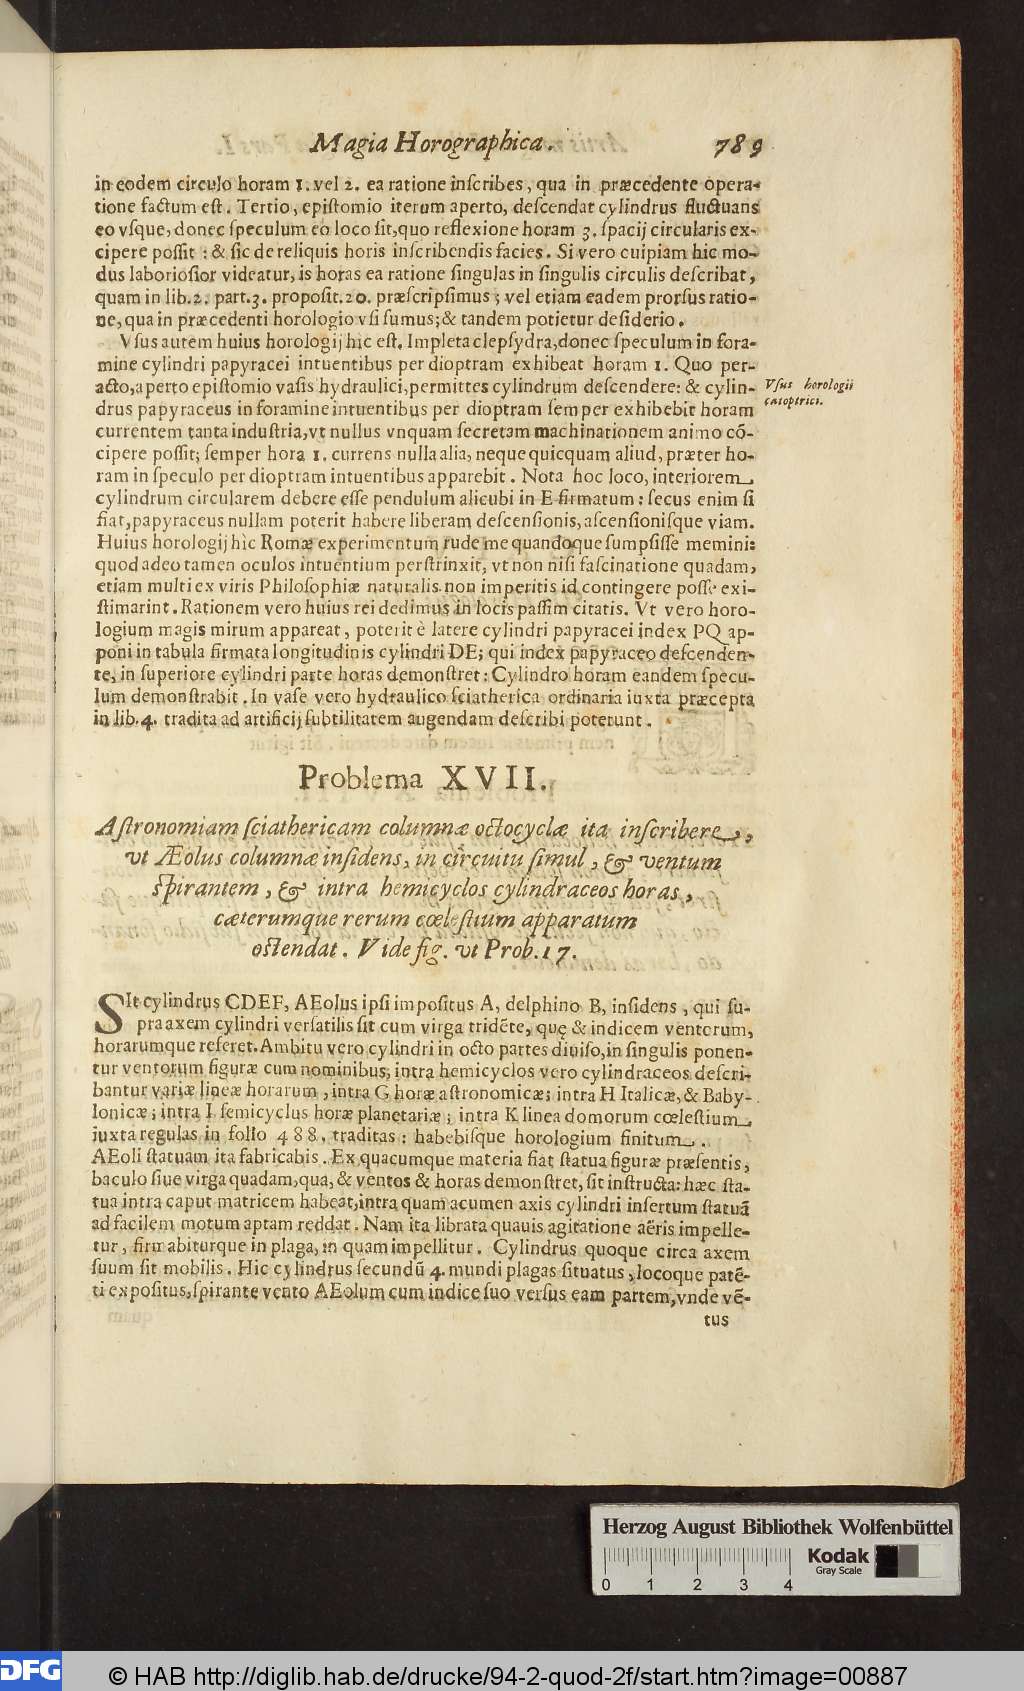 Magia Horographica. 789
in eodem circulo horam 1. vel 2. ea ratione inſcribes, qua in præcedente opera-
tione factum eſt. Tertio, epiſtomio iterum aperto, deſcendat cylindrus fluctuans
eo vſque, donec ſpeculum eo loco ſit, quo reflexione horam 3. ſpacij circularis ex-
cipere poſſit : & ſic de reliquis horis inſcribendis facies. Si vero cuipiam hic mo-
dus laborioſior videatur, is horas ea ratione ſingulas in ſingulis circulis deſcribat,
quam in lib.2. part.3. propoſit.20. præſcripſimus ; vel etiam eadem prorſus ratio-
ne, qua in præcedenti horologio vſi ſumus; & tandem potietur deſiderio.
Vſus autem huius horologij hic eſt. Impleta clepſydra, donec ſpeculum in fora-
mine cylindri papyracei intuentibus per dioptram exhibeat horam 1. Quo per-
acto, aperto epiſtomio vaſis hydraulici, permittes cylindrum deſcendere: & cylin-
drus papyraceus in foramine intuentibus per dioptram ſemper exhibebit horam
Vſus horologii
catoptrici.
currentem tanta induſtria, vt nullus vnquam ſecretam machinationem animo cō-
cipere poſſit; ſemper hora 1. currens nulla alia, neque quicquam aliud, præter ho-
ram in ſpeculo per dioptram intuentibus apparebit. Nota hoc loco, interiorem
cylindrum circularem debere eſſe pendulum alicubi in E firmatum : ſecus enim ſi
fiat, papyraceus nullam poterit habere liberam deſcenſionis, aſcenſioniſque viam.
Huius horologij hìc Romæ experimentum rude me quandoque ſumpſiſſe memini:
quod adeo tamen oculos intuentium perſtrinxit, vt non niſi faſcinatione quadam,
etiam multi ex viris Philoſophiæ naturalis non imperitis id contingere poſſe exi-
ſtimarint. Rationem vero huius rei dedimus in locis paſſim citatis. Vt vero horo-
logium magis mirum appareat, poterit è latere cylindri papyracei index PQ ap-
poni in tabula firmata longitudinis cylindri DE; qui index papyraceo deſcenden-
te, in ſuperiore cylindri parte horas demonſtret : Cylindro horam eandem ſpecu-
lum demonſtrabit. In vaſe vero hydraulico ſciatherica ordinaria iuxta præcepta
in lib. 4. tradita ad artificij ſubtilitatem augendam deſcribi poterunt.
Problema XVII.
Aſtronomiam ſciathericam columnæ octocyclæ ita inſcribere,
vt Æolus columnæ inſidens, in circuitu ſimul, & ventum
ſpirantem, & intra hemicyclos cylindraceos horas,
cæterumque rerum cœleſtium apparatum
oſtendat. Vide fig. vt Prob.17.
SIt cylindrus CDEF, AEolus ipſi impoſitus A, delphino B, inſidens, qui ſu-
pra axem cylindri verſatilis ſit cum virga tridēte, quę & indicem ventorum,
horarumque referet. Ambitu vero cylindri in octo partes diuiſo, in ſingulis ponen-
tur ventorum figuræ cum nominibus; intra hemicyclos vero cylindraceos deſcri-
bantur variæ lineæ horarum, intra G horæ aſtronomicæ; intra H Italicæ, & Baby-
lonicæ; intra I ſemicyclus horæ planetariæ ; intra K linea domorum cœleſtium,
iuxta regulas in folio 488. traditas : habebiſque horologium finitum.
AEoli ſtatuam ita fabricabis. Ex quacumque materia fiat ſtatua figuræ præſentis,
baculo ſiue virga quadam, qua, & ventos & horas demonſtret, ſit inſtructa: hæc ſta-
tua intra caput matricem habeat, intra quam acumen axis cylindri inſertum ſtatuā
ad facilem motum aptam reddat. Nam ita librata quauis agitatione aëris impelle-
tur, firmabiturque in plaga, in quam impellitur. Cylindrus quoque circa axem
ſuum ſit mobilis. Hic cylindrus ſecundū 4. mundi plagas ſituatus, locoque patē-
ti expoſitus, ſpirante vento AEolum cum indice ſuo verſus eam partem, vnde vē-
tus
Herzog August Bibliothek Wolfenbüttel
0 1 2 3 4
Kodak
Gray Scale
DFG
© HAB http://diglib.hab.de/drucke/94-2-quod-2f/start.htm?image=00887